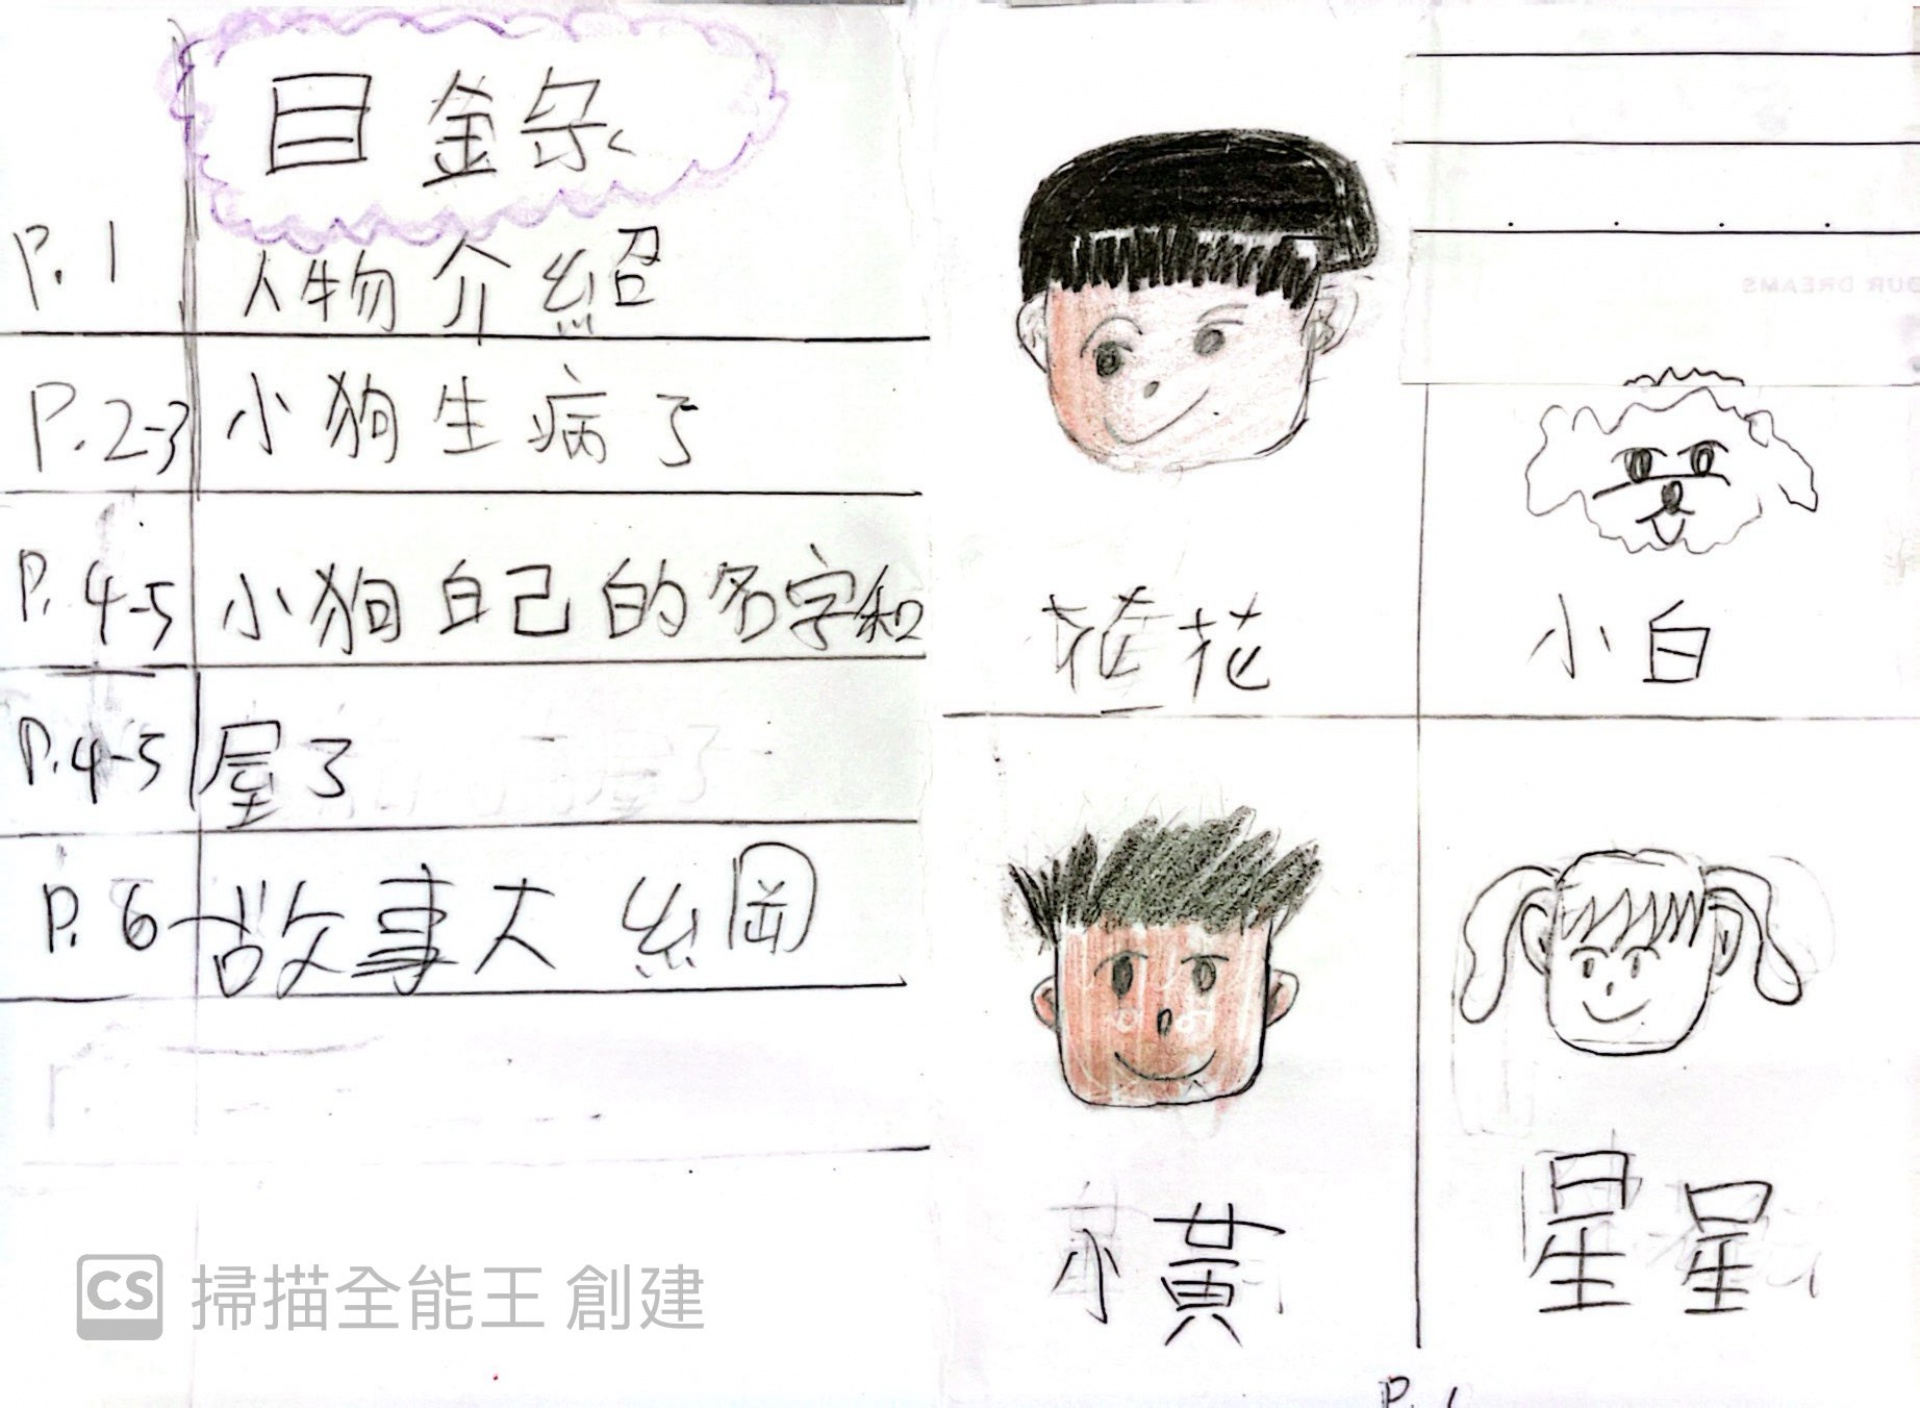 目錄
P.1 人物介紹
P.2-3 小狗生病了
P.4-5 小狗自己的名字和
P.4-5 屋了
P.6 故事大綱
花
小白
小黃
星星
P.1
OUR DREAMS
CS 掃描全能王 創建